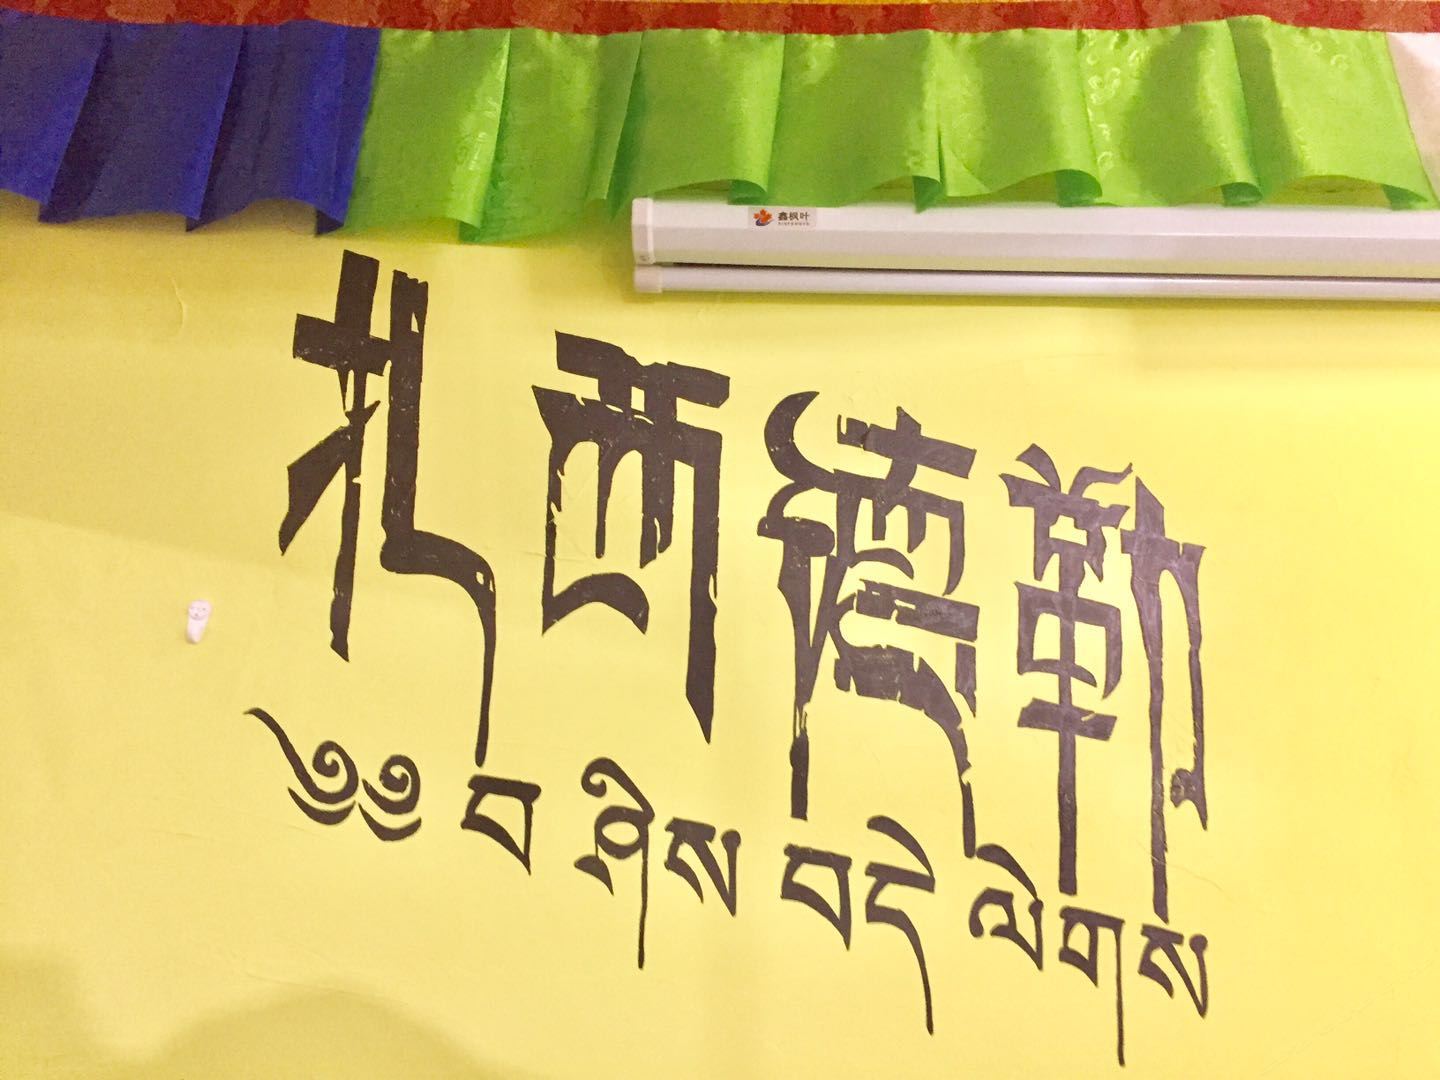 鑫枫叶
扎西德勒
༄༅ བ ཤིས བདེ ལེགས